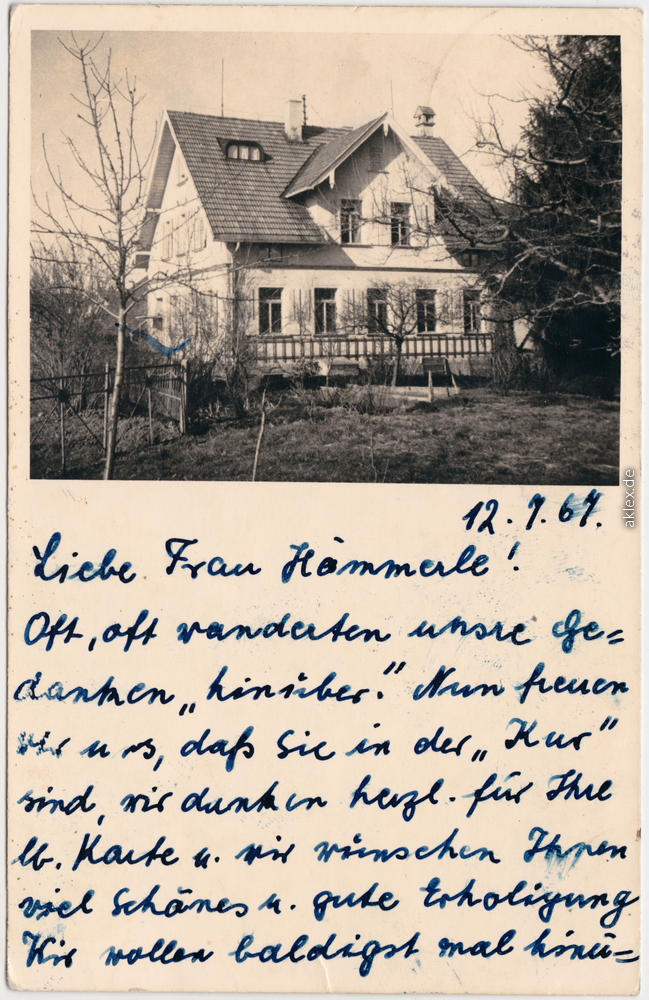 12.7.67.
Liebe Frau Hämmerle!
Oft, oft wanderten unsre Ge=
danken „hinüber." Nun freuen
wir uns, daß Sie in der „Kur"
sind, wir danken herzl. für Ihre
lb. Karte u. wir wünschen Ihnen
viel Schönes u. gute Erholigung
Wir wollen baldigst mal hinü=
aklex.de